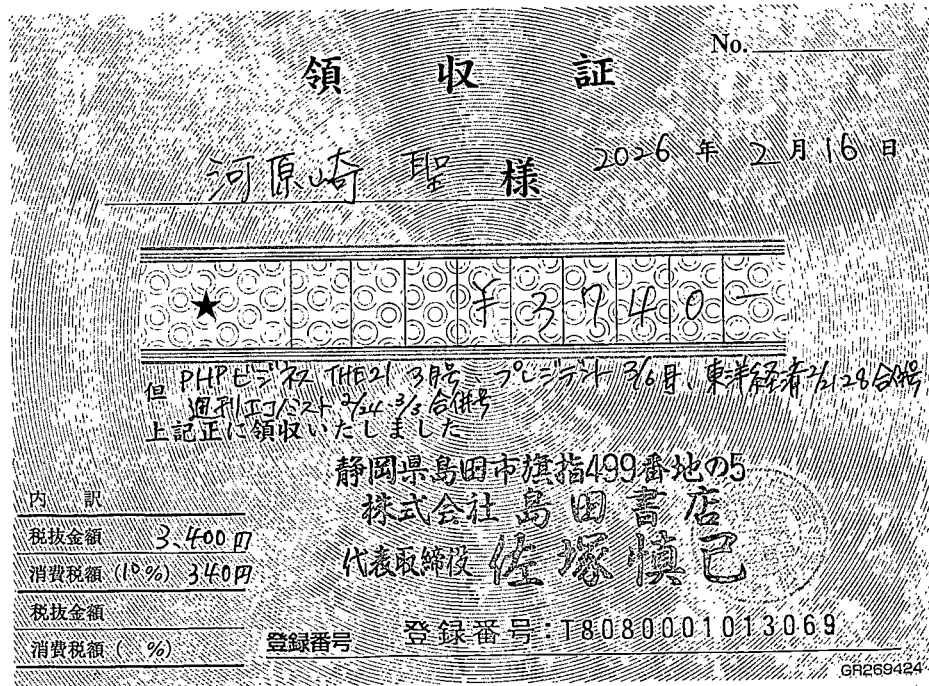 No.
領収証
河原崎 聖 様
2026年2月16日
★ ¥3740-
但 PHPビジネス THE21 3月号、プレジデント 3/6号、東洋経済 2/21・28合併号
週刊エコノミスト 2/24・3/3合併号
上記正に領収いたしました
静岡県島田市旗指499番地の5
株式会社 島田書店
代表取締役 佐塚慎己
内訳
税抜金額 3,400円
消費税額(10%) 340円
税抜金額
消費税額( %)
登録番号 登録番号:T8080001013069
GR269424